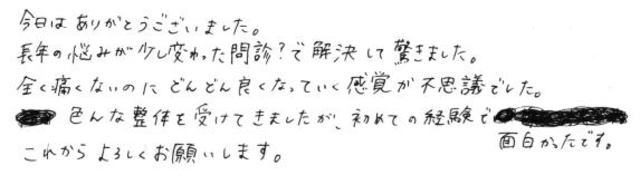 今日はありがとうございました。
長年の悩みが少し変わった問診？で解決して驚きました。
全く痛くないのにどんどん良くなっていく感覚が不思議でした。
色んな整体を受けてきましたが、初めての経験で
面白かったです。
これからよろしくお願いします。